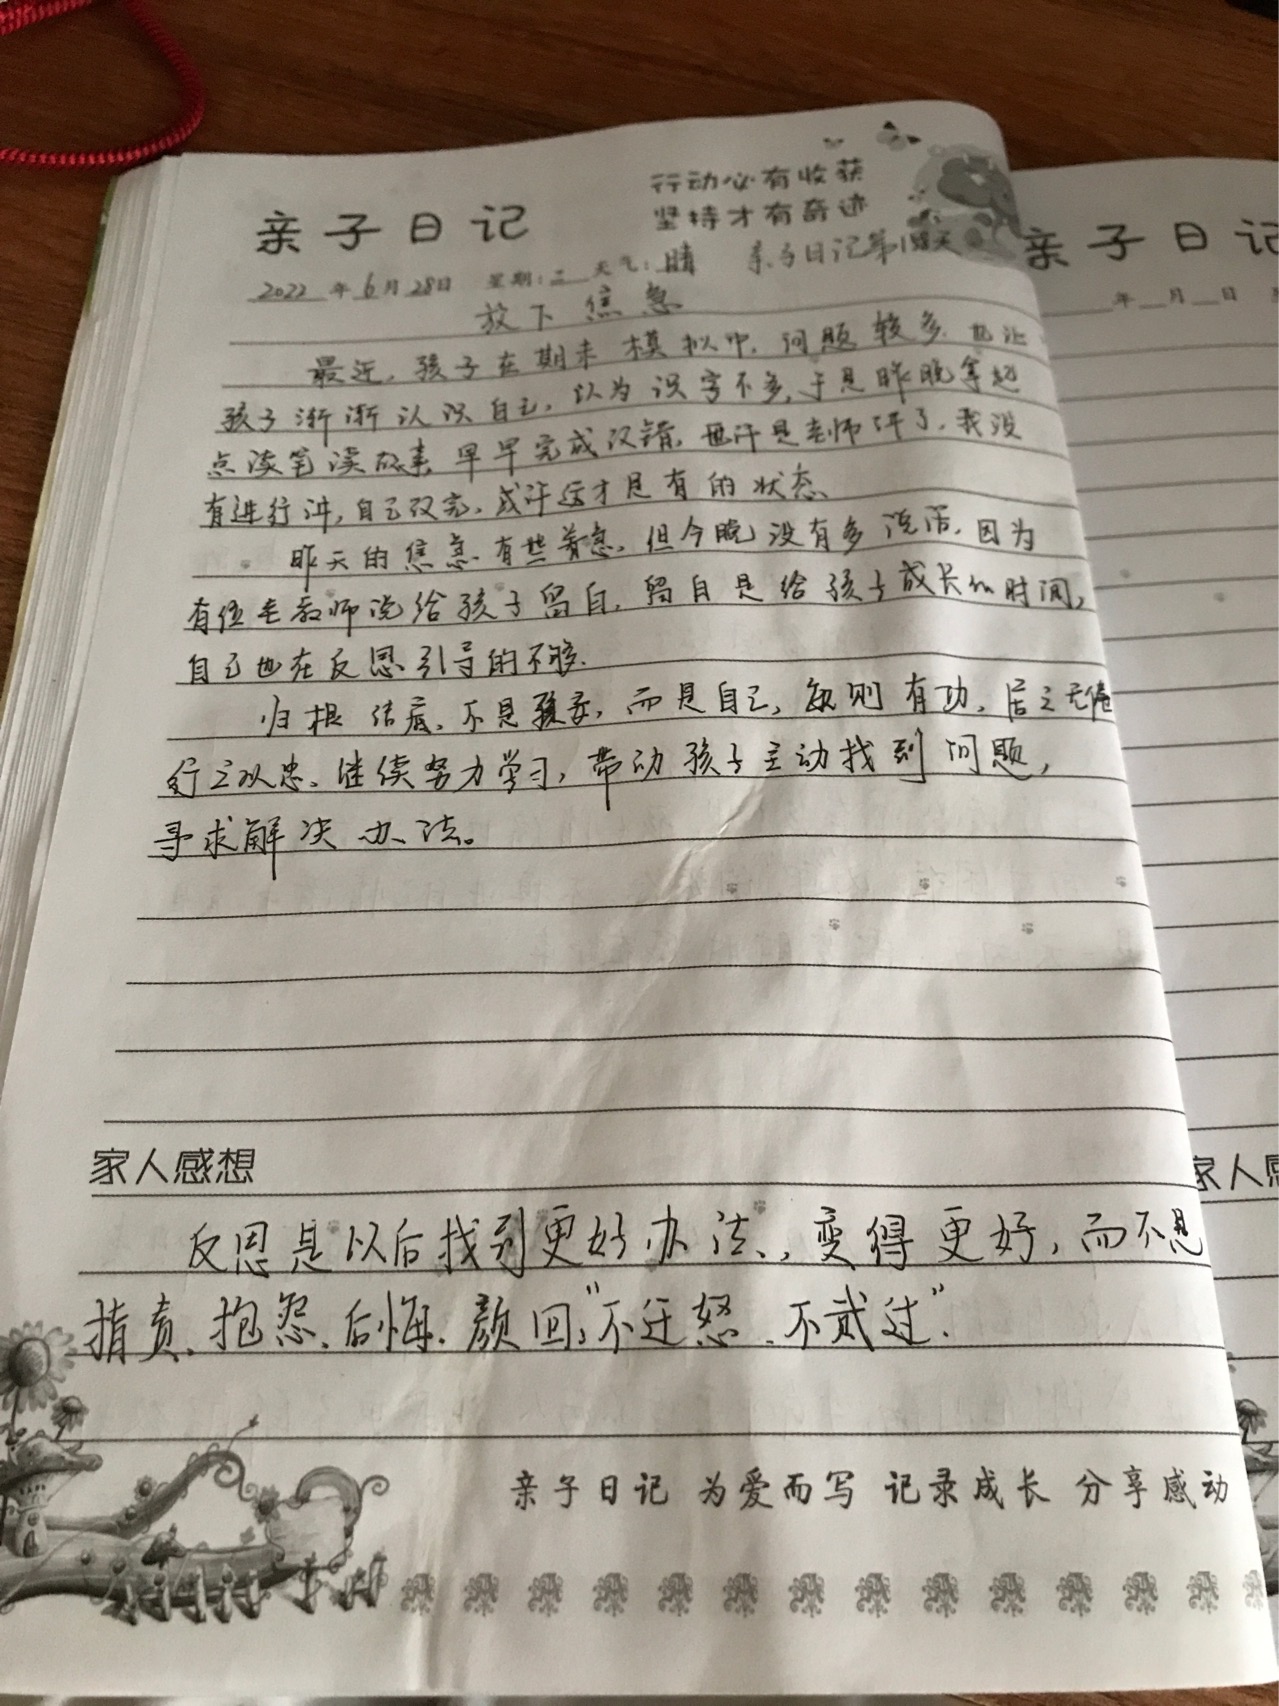 行动必有收获
亲子日记
坚持才有奇迹
2022年6月28日 星期:二 天气:晴 亲子日记第1天
放下焦急
最近,孩子在期末模拟中,问题较多,也让
孩子渐渐认识自己,以为识字不多,于是昨晚拿起
点读笔读故事,早早完成改错,也许是老师讲了,我没
有进行讲,自己改完,或许这才是有的状态、
昨天的焦急、有些着急,但今晚没有多说话,因为
有位老教师说给孩子留白,留白是给孩子成长的时间,
自己也在反思引导的不够.
归根结底,不是孩子,而是自己,敏则有功,居之无倦
行之以忠、继续努力学习,带动孩子主动找到问题,
寻求解决办法。
家人感想
反思是以后找到更好办法、,变得更好,而不是
指责、抱怨、后悔.颜回:“不迁怒、不贰过”.
亲子日记 为爱而写 记录成长 分享感动
亲子日记
年 月 日
家人感